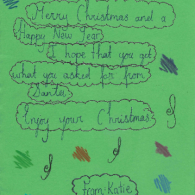 Merry Christmas and a
Happy New Year
I hope that you get
what you asked for from
Santa
Enjoy your Christmas
from Katie